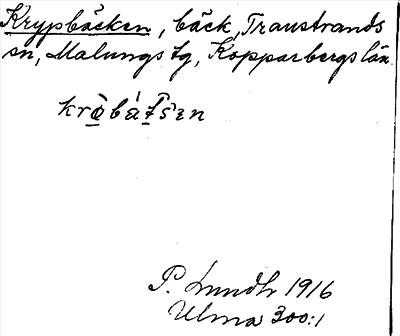 Krypbäcken, bäck, Transtrands
sn, Malungs tg, Kopparbergs län.
P. Lundh 1916
Ulma 300:1